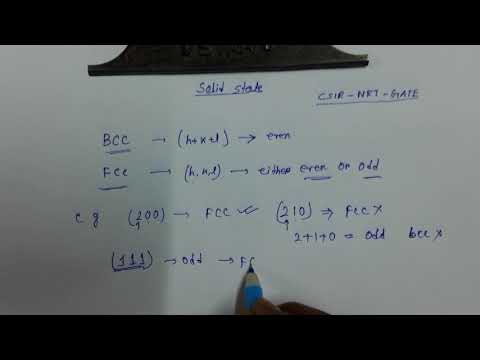 Solid state
CSIR-NET-GATE
BCC → (h+k+l) → even
FCC → (h,k,l) → either even or odd
e.g (200) → FCC ✓ (210) ⇒ FCC X
2+1+0 = odd bcc X
(111) → odd → FC